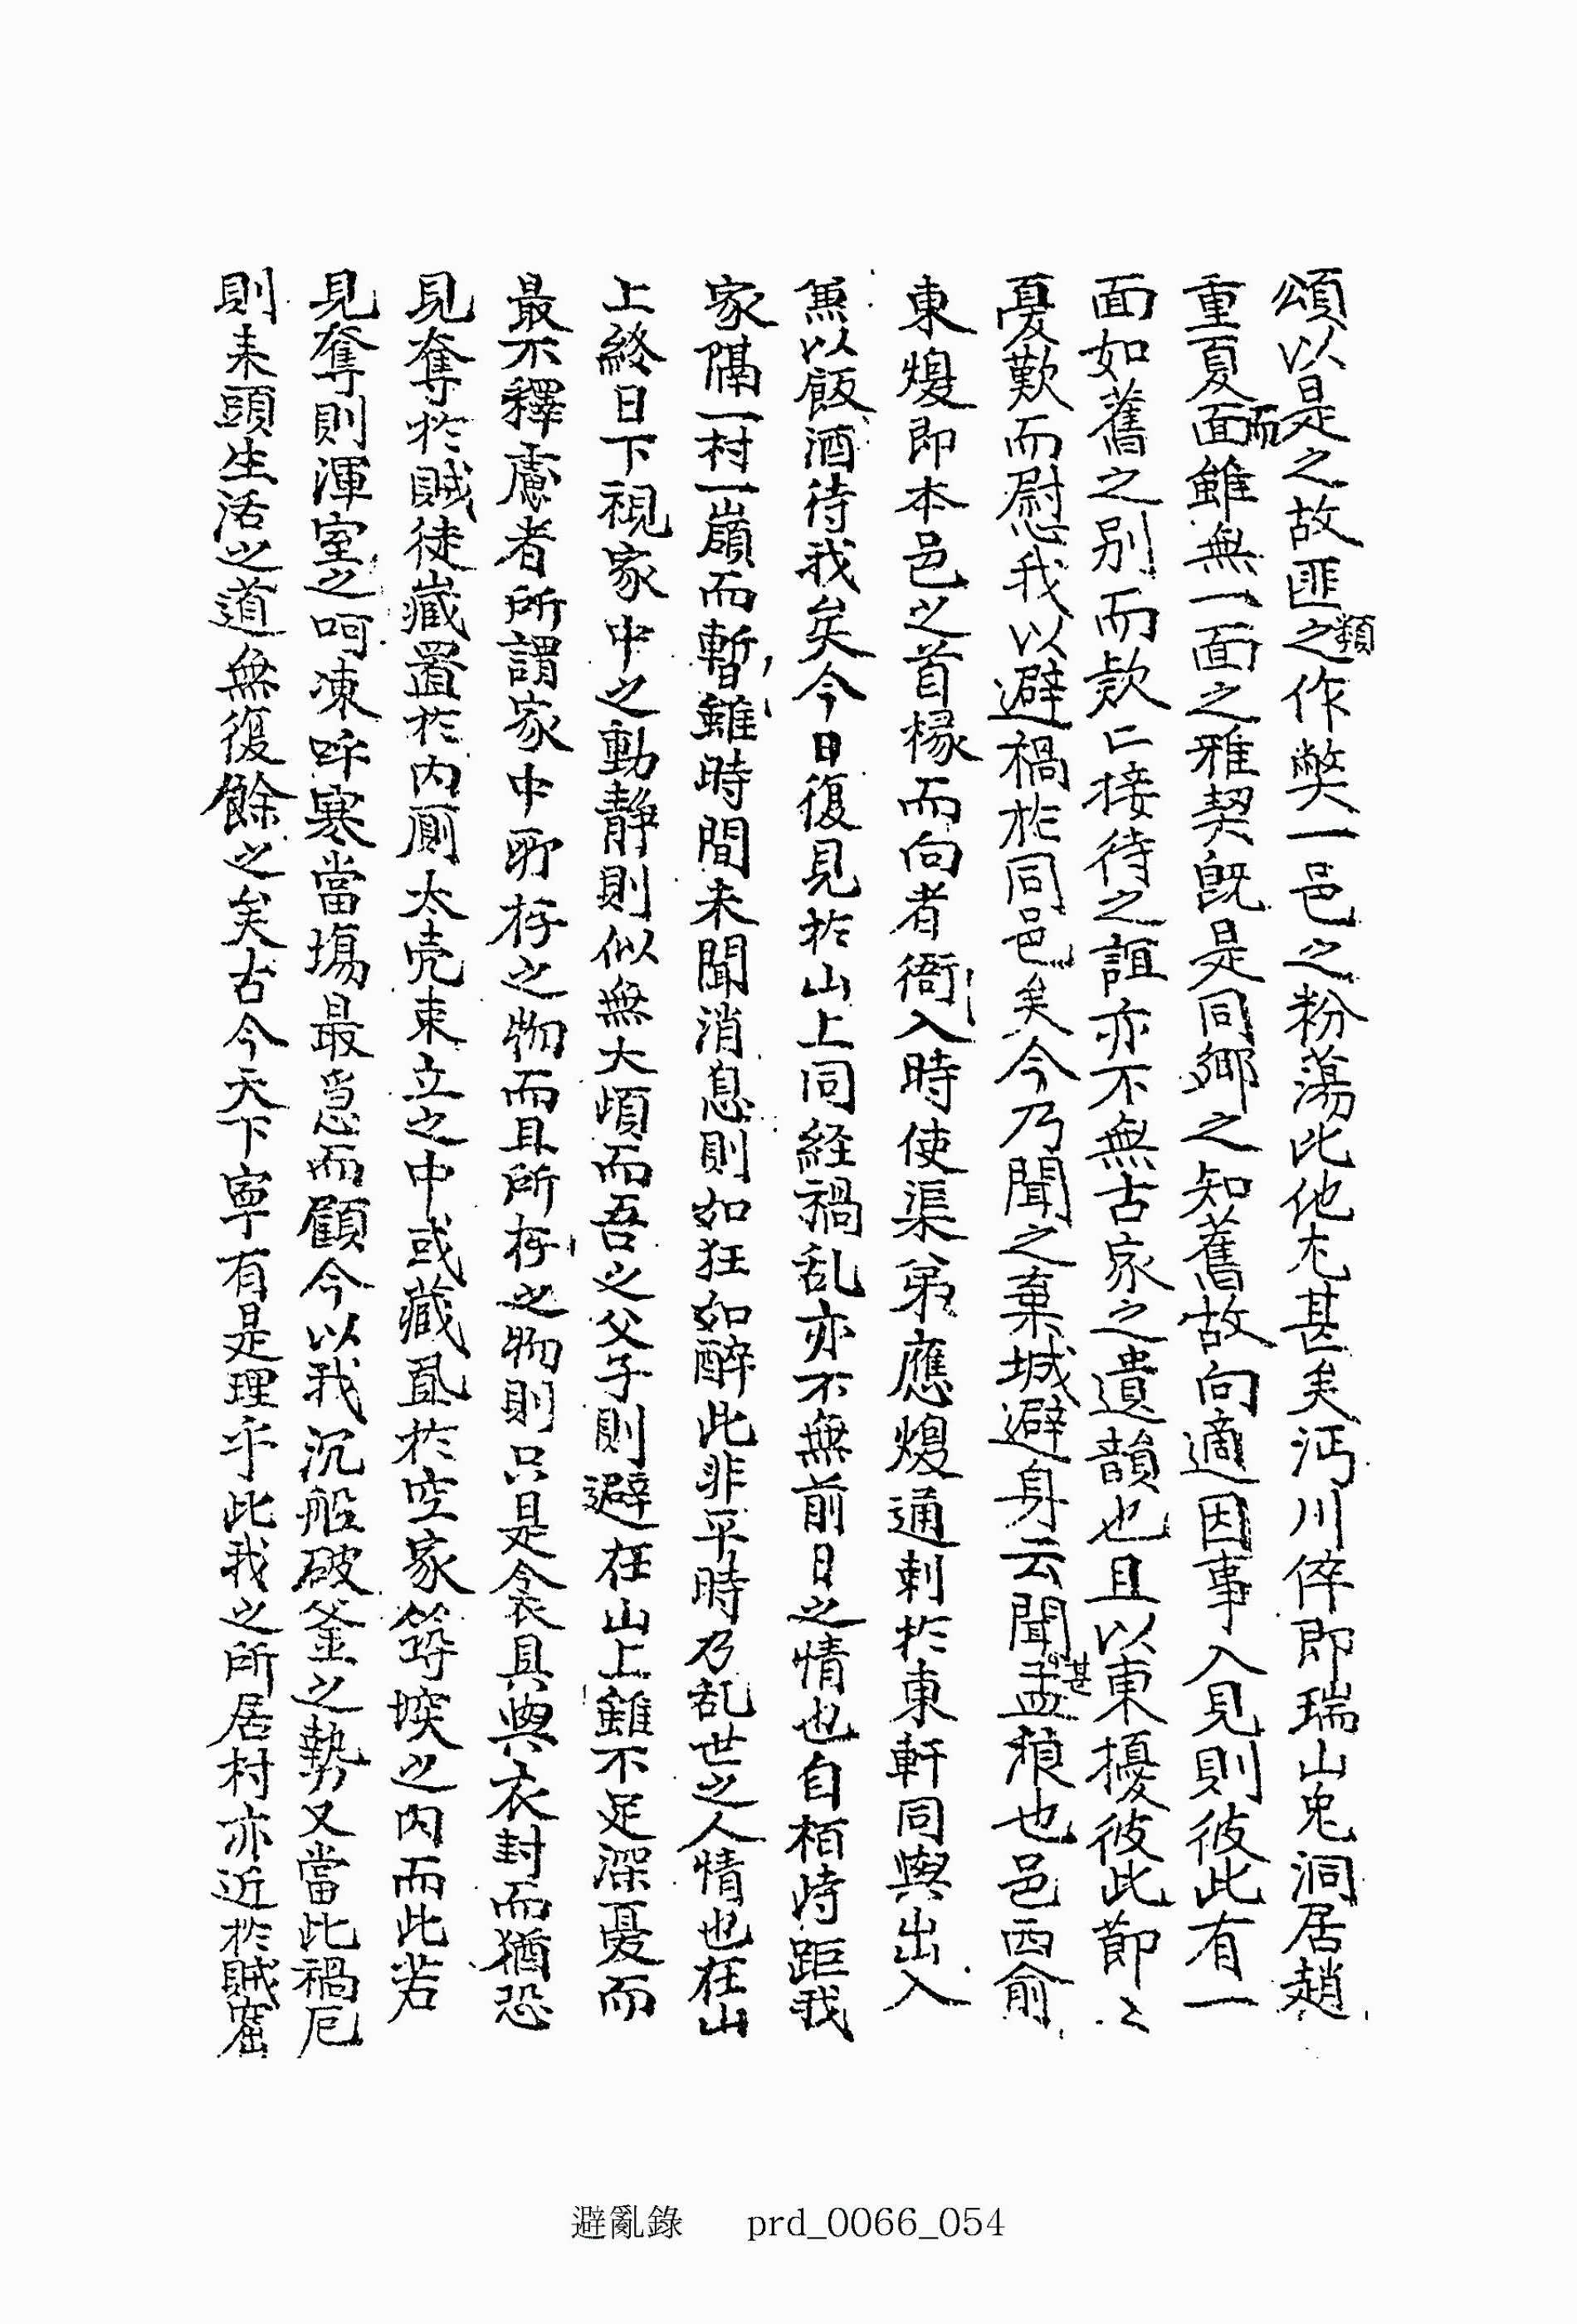 頌以是之故匪類之作弊一邑之粉蕩此他尤甚矣沔川倅即瑞山兎洞居趙
重夏面而雖無一面之雅契旣是同鄉之知舊故向適因事入見則彼此有一
面如舊之別而欵〻接待之誼亦不無古家之遺韻也且以東擾彼此節〻
憂歎而慰我以避禍於同邑矣今乃聞之棄城避身云聞甚孟浪也邑西俞
東煥即本邑之首椽而向者衙入時使渠弟應煥通刺於東軒同輿出入
兼以飯酒待我矣今日復見於山上同経禍乱亦不無前日之情也自栢峙距我
家隔一村一嶺而暫雖時間未聞消息則如狂如醉此非平時乃乱世之人情也在山
上終日下視家中之動靜則似無大頉而吾之父子則避在山上雖不足深憂而
最不釋慮者所謂家中所存之物而且所存之物則只是衾具與衣封而猶恐
見奪於賊徒藏置於內廁太壳束立之中或藏置於空家筭堗之內而此若
見奪則渾室之呵凍呼寒當塲最急而顧今以我沉船破釜之勢又當此禍厄
則来頭生活之道無復餘之矣古今天下寧有是理乎此我之所居村亦近於賊窟
避亂錄 prd_0066_054